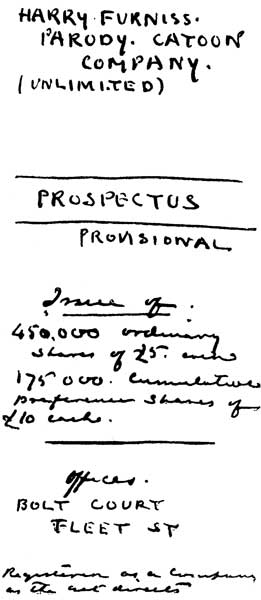 HARRY FURNISS.
PARODY. CATOON
COMPANY.
(UNLIMITED)
PROSPECTUS
PROVISIONAL
Issue of:
450,000 ordinary
shares of £5. each
175000. Cumulative
preference shares of
£10 each.
Offices.
BOLT COURT
FLEET ST
Registered as a Company
as the act directs